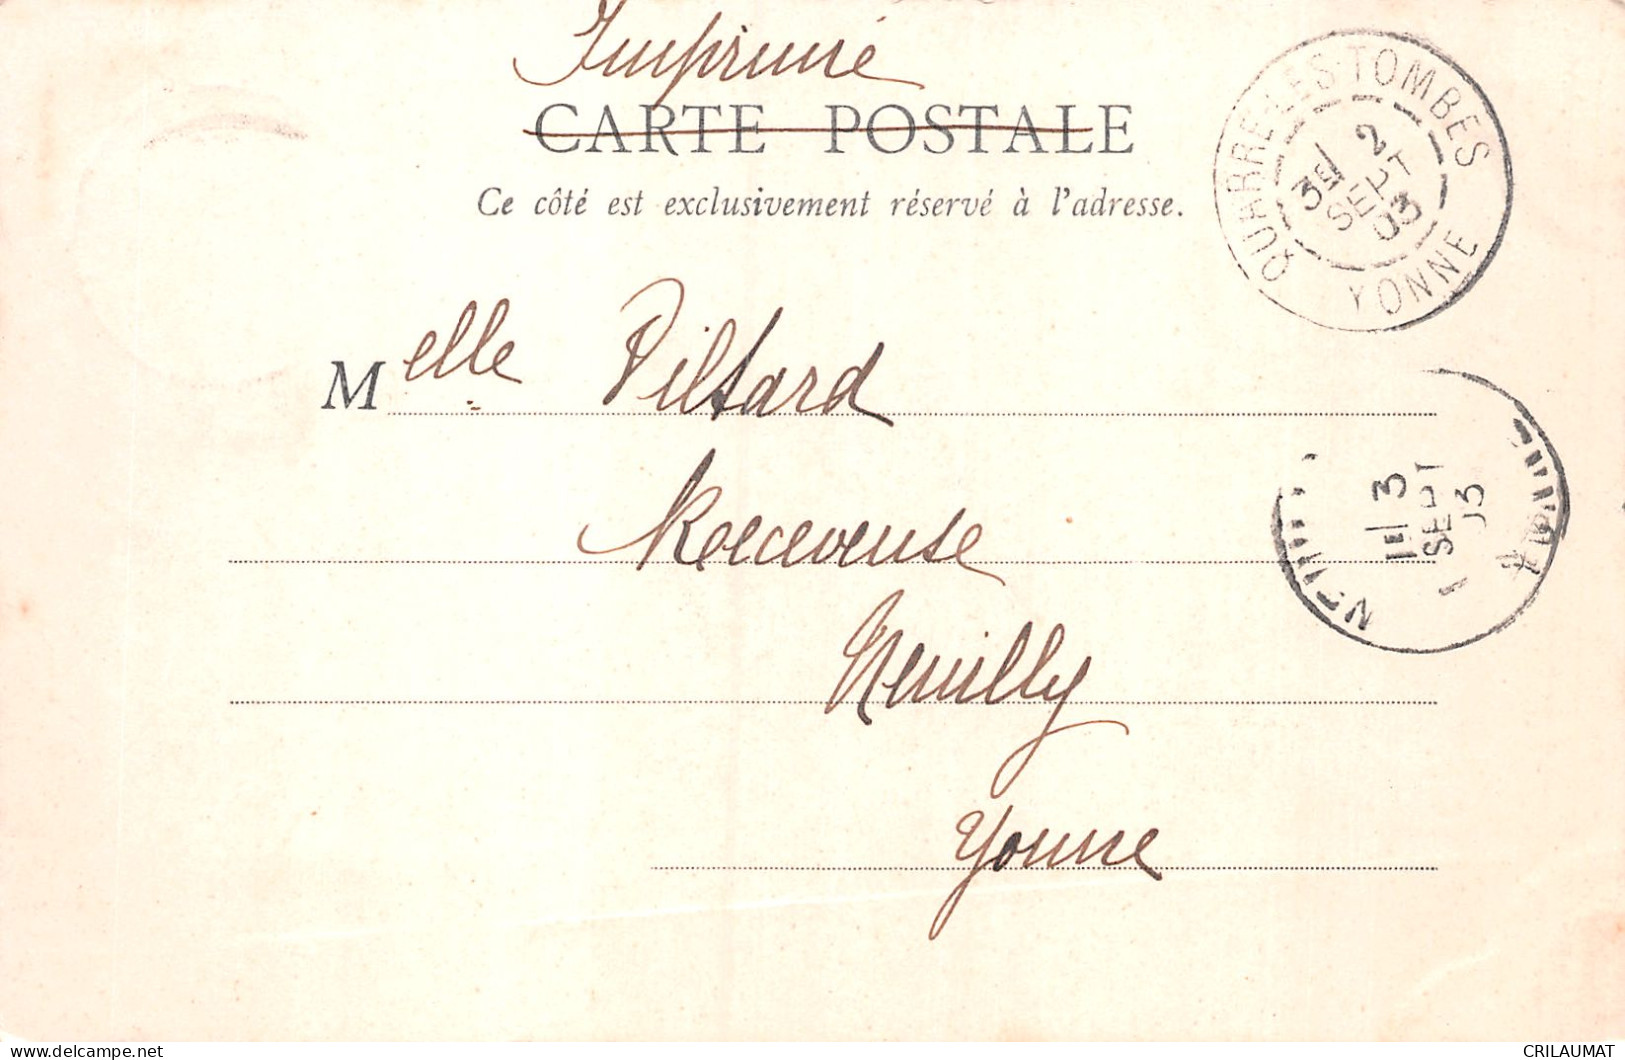 Imprimé
CARTE POSTALE
Ce côté est exclusivement réservé à l'adresse.
QUARRE-LES-TOMBES
3E 2
SEPT
03
YONNE
Melle Piltard
Receveuse
Neuilly
Yonne
3
SEPT
03
delcampe.net
CRILAUMAT